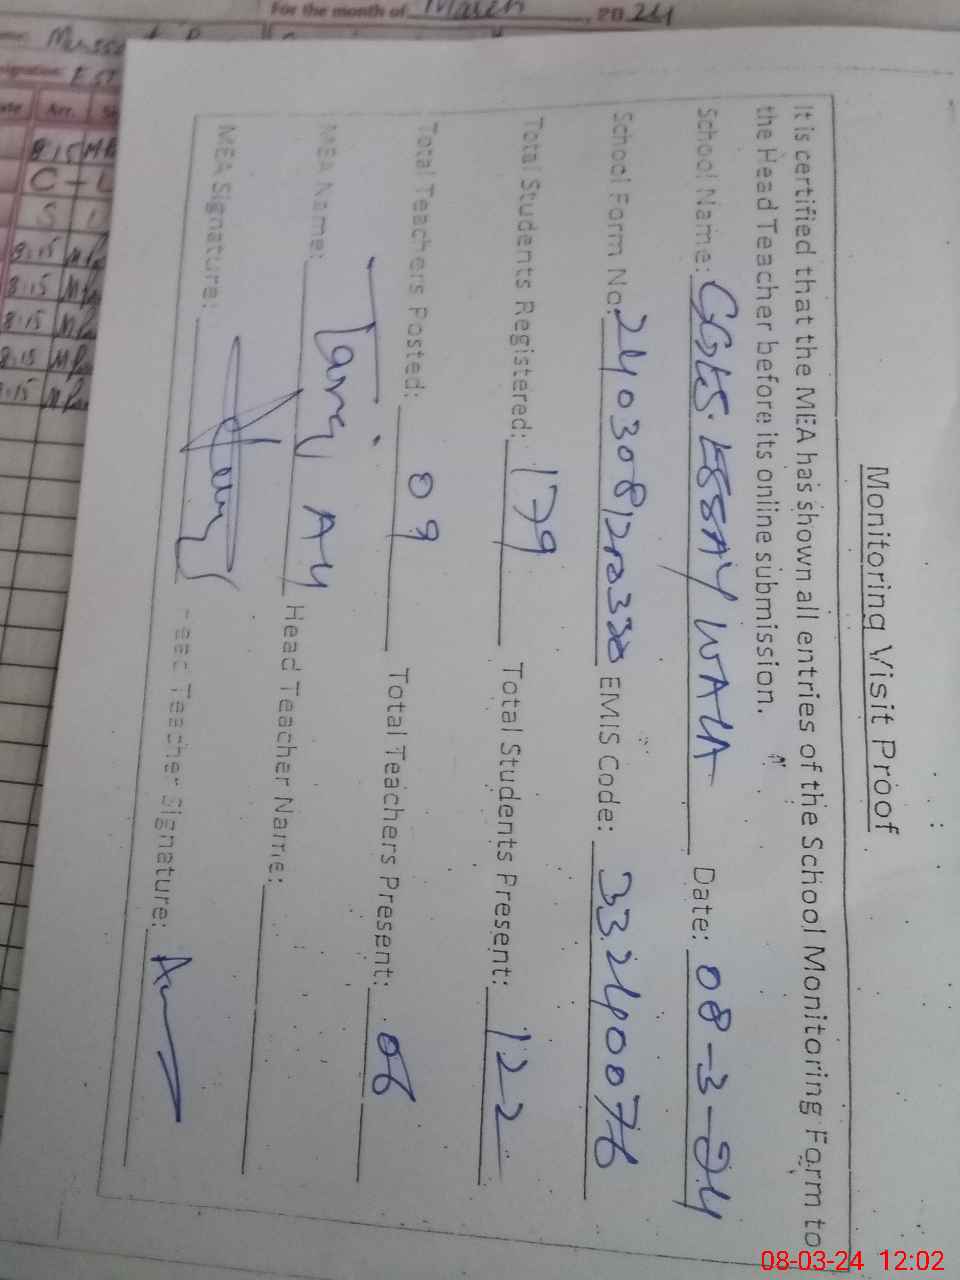 For the month of March, 2024
Arr.
8:15
8:15
8:15
8:15
8:15
Monitoring Visit Proof
It is certified that the MEA has shown all entries of the School Monitoring Form to
the Head Teacher before its online submission.
School Name: GGES. ESSAY WALA Date: 08-3-24
School Form No: EMIS Code: 33240076
Total Students Registered: 179 Total Students Present: 122
Total Teachers Posted: 09 Total Teachers Present: 06
MEA Name: Tariq Ali Head Teacher Name:
MEA Signature: Head Teacher Signature:
08-03-24 12:02